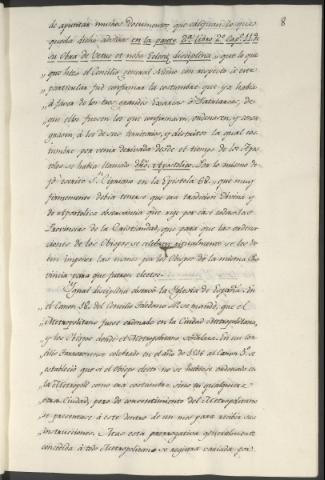 8
de apuntar muchos Documentos que califican lo que
queda dicho adelante en la parte 2ª libro 2º Cap. 112
su Obra de Vetus et noba Eclesiæ disciplina, y que lo que
hizo el Concilio general Niceno con respecto a este
particular fué confirmar la costumbre que ya habia
á favor de los tres grandes Exarcas ó Patriarcas; de
que ellos fuesen los que confirmasen, ordenasen, y consa-
grasen á los de sus territorios, y distritos la qual cos-
tumbre por venir derivada desde el tiempo de los Apos-
toles se habia llamado dho Apostolico. Por lo mismo de-
jó escrito S.n Cipriano en la Epistola 68. que muy
firmemente debia tenerse que era tradicion Divina y
de Apostolica observancia que rige por casi todas las
Provincias de la Cristiandad, que para que las ordena-
ciones de los Obispos se celebren legalmente se les de-
ben imponer las manos por los Obispos de la misma Pro-
vincia para que fuesen electos.
Igual disciplina observó la Iglesia de España. En
el Canon 58. del Concilio Iliberino se mandó, que el
Metropolitano fuese ordenado en la Ciudad Metropolitana,
y los Obispos donde el Metropolitano señalare. En un con-
cilio Tarraconense celebrado en el año de 516 al Canon 5º se
estableció que si el Obispo electo no se hubiese ordenado en
la Metropoli como era costumbre sino en qualquiera
otra Ciudad, pero de consentimiento del Metropolitano
se presentase á este dentro de un mes para recibir sus
instrucciones. Mas esta prerrogativa generalmente
concedida á todo Metropolitano se registra variada por